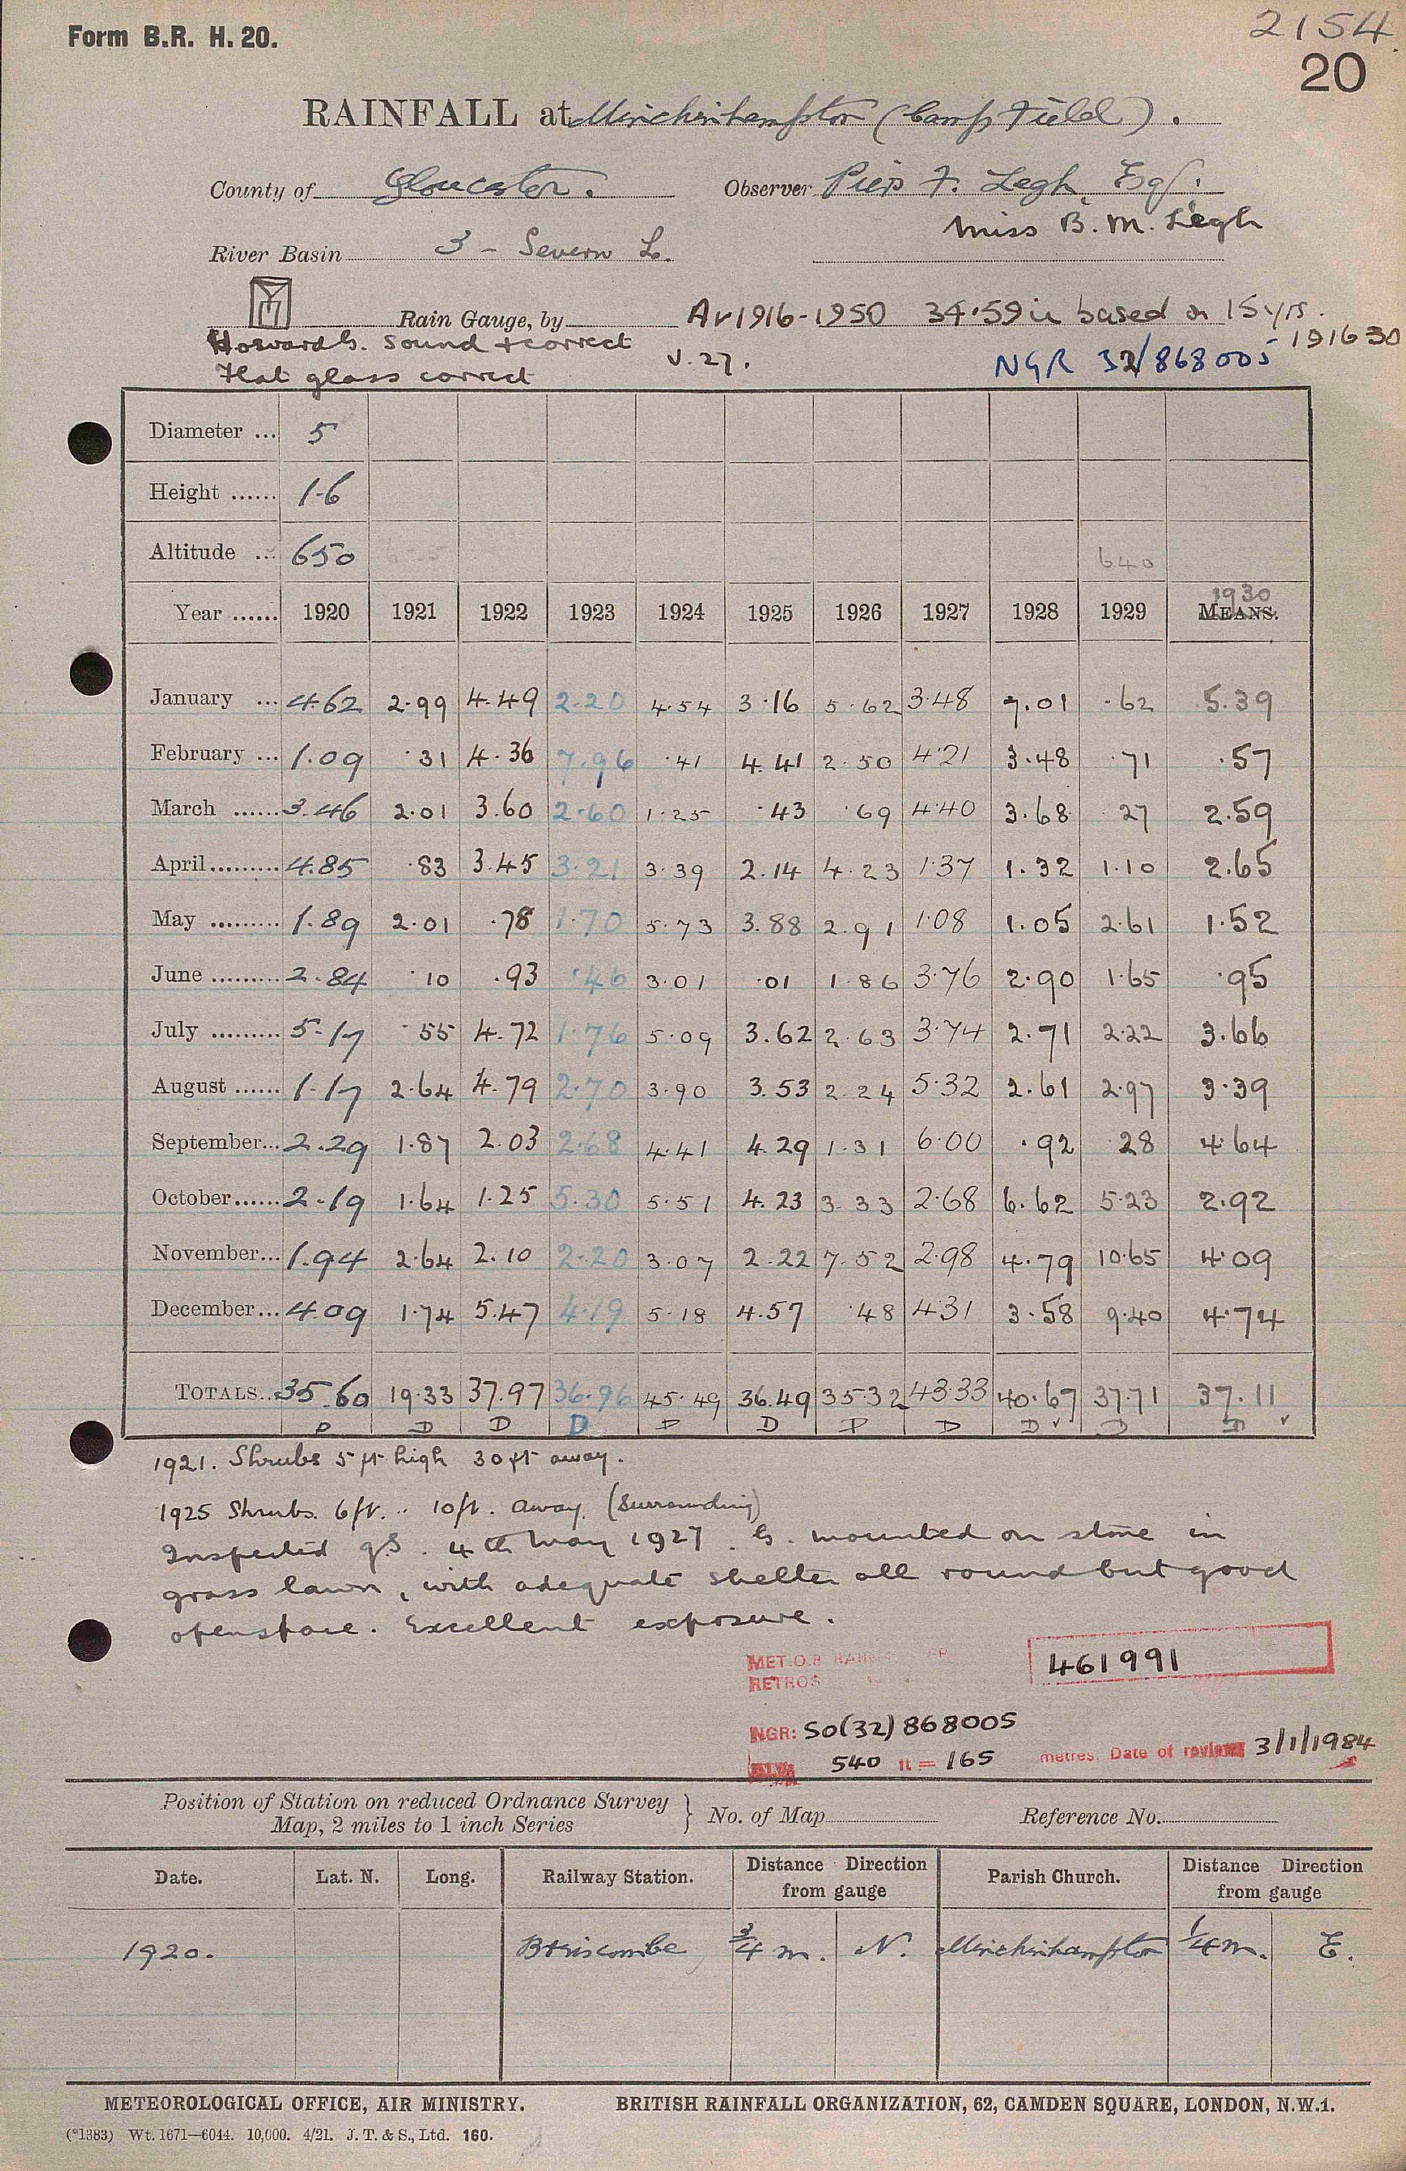 Form B.R. H. 20.
2154
20
RAINFALL at Minchinhampton (Camp Field).
County of Gloucester. Observer Piers F. Legh Esq.
Miss B. M. Legh
River Basin 3 - Severn L.
Rain Gauge, by Av 1916-1950 34.59 in based on 15 yrs.
1916 30
Howard G. Sound + correct V.27. NGR 32/868005
Flat glass correct
Diameter ... 5
Height ...... 1.6
Altitude ... 650 640
1930
Year ...... 1920 1921 1922 1923 1924 1925 1926 1927 1928 1929 MEANS.
January ... 4.62 2.99 4.49 2.20 4.54 3.16 5.62 3.48 7.01 .62 5.39
February ... 1.09 .31 4.36 7.96 .41 4.41 2.50 4.21 3.48 .71 .57
March ...... 3.46 2.01 3.60 2.60 1.25 .43 .69 4.40 3.68 .27 2.59
April......... 4.85 .83 3.45 3.21 3.39 2.14 4.23 1.37 1.32 1.10 2.65
May ......... 1.89 2.01 .78 1.70 5.73 3.88 2.91 1.08 1.05 2.61 1.52
June ......... 2.84 .10 .93 .46 3.01 .01 1.86 3.76 2.90 1.65 .95
July ......... 5.17 .55 4.72 1.76 5.09 3.62 2.63 3.74 2.71 2.22 3.66
August ...... 1.17 2.64 4.79 2.70 3.90 3.53 2.24 5.32 2.61 2.97 3.39
September... 2.29 1.87 2.03 2.68 4.41 4.29 1.31 6.00 .92 .28 4.64
October...... 2.19 1.64 1.25 5.30 5.51 4.23 3.33 2.68 6.62 5.23 2.92
November... 1.94 2.64 2.10 2.20 3.07 2.22 7.52 2.98 4.79 10.65 4.09
December... 4.09 1.74 5.47 4.19 5.18 4.57 .48 4.31 3.58 9.40 4.74
TOTALS... 35.60 19.33 37.97 36.96 45.49 36.49 35.32 43.33 40.67 37.71 37.11
D D D D D D D D D ✓ D D ✓
1921. Shrubs 5 ft high 30 ft away.
1925 Shrubs. 6ft. .. 10ft. away. (Surrounding)
Inspected gS. 4th May 1927. G. mounted on stone in
grass lawn, with adequate shelter all round but good
openspace. Excellent exposure.
MET.O.8
RETROS
461991
NGR: SO(32) 868005
540 ft = 165 metres. Date of review 3/1/1984
Position of Station on reduced Ordnance Survey
Map, 2 miles to 1 inch Series } No. of Map Reference No.
Date. Lat. N. Long. Railway Station. Distance Direction from gauge Parish Church. Distance Direction from gauge
1920. Brimscombe 3/4 m. N. Minchinhampton 1/4 m. E.
METEOROLOGICAL OFFICE, AIR MINISTRY. BRITISH RAINFALL ORGANIZATION, 62, CAMDEN SQUARE, LONDON, N.W.1.
(*1383) Wt. 1671—6044. 10,000. 4/21. J. T. & S., Ltd. 160.